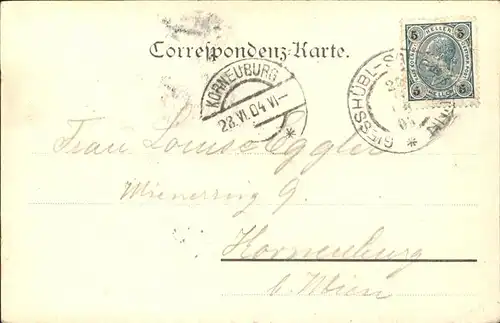 Correspondenz-Karte.
5 HELLER 5
KORNEUBURG
28.VI.04 VI-
*
GIESSHÜBL-S
*
5 5
Frau Louise Eggler
Wienerring 9.
Korneuburg
b. Wien